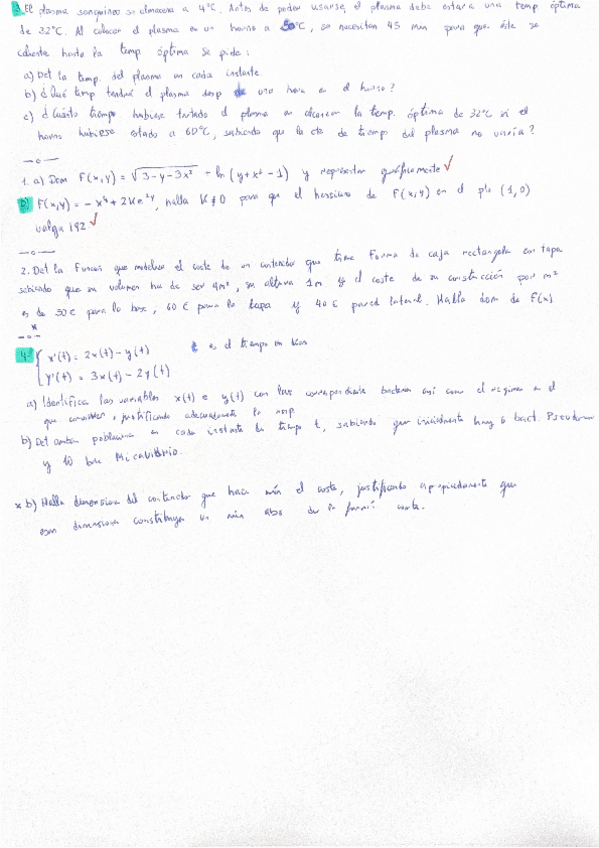 3. El plasma sanguíneo se almacena a 4°C. Antes de poder usarse, el plasma debe estar a una temp óptima
de 32°C. Al colocar el plasma en un horno a 50°C, se necesitan 45 min para que éste se
caliente hasta la temp óptima se pide:
a) Det la temp. del plasma en cada instante.
b) ¿Qué temp tendrá el plasma desp de una hora en el horno?
c) ¿Cuánto tiempo hubiese tardado el plasma en alcanzar la temp. óptima de 32°C si el
horno hubiese estado a 60°C, sabiendo que la cte de tiempo del plasma no varía?
1. a) Dom F(x,y) = √(3-y-3x²) - ln(y+x²-1) y representar gráficamente ✓
b) F(x,y) = -x⁴ + 2K e²ʸ, halla K≠0 para que el hessiano de F(x,y) en el pto (1,0)
valga 192 ✓
2. Det la función que modeliza el coste de un contenedor que tiene forma de caja rectangular con tapa
sabiendo que su volumen ha de ser 9m³, su altura 1m y el coste de su construcción por m²
es de 50€ para la base, 60€ para la tapa y 40€ pared lateral. Halla dom de F(x)
*
4. { x'(t) = 2x(t) - y(t) t es el tiempo en
y'(t) = 3x(t) - 2y(t)
a) Identifica las variables x(t) e y(t) con las correspondientes bacterias así como el régimen en el
que conviven, justificando adecuadamente la resp.
b) Det ambas poblaciones en cada instante de tiempo t, sabiendo que inicialmente hay 6 bact.
y 10
* b) Halla dimensiones del contenedor que hacen mín el coste, justificando apropiadamente que
esas dimensiones constituyen un mín abs de la función coste.